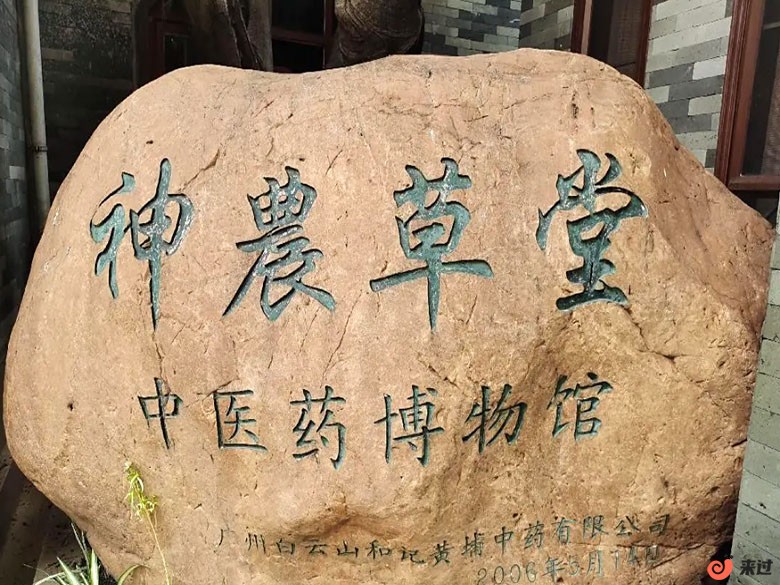 神農草堂
中医药博物馆
广州白云山和记黄埔中药有限公司
2006年3月14日
来过